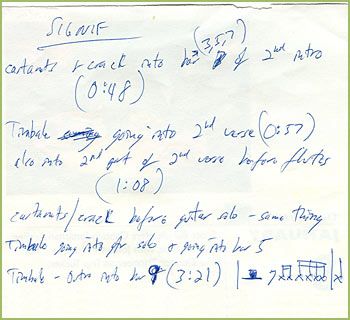 SIGNIF
castanets & crack into bar (3,5,7) of 2nd intro
(0:48)
Timbale going into 2nd verse (0:57)
also into 2nd part of 2nd verse before flutes
(1:08)
castanets/crack before guitar solo - same thing
Timbale going into gtr solo & going into bar 5
Timbale - Outro into bar 9 (3:21)